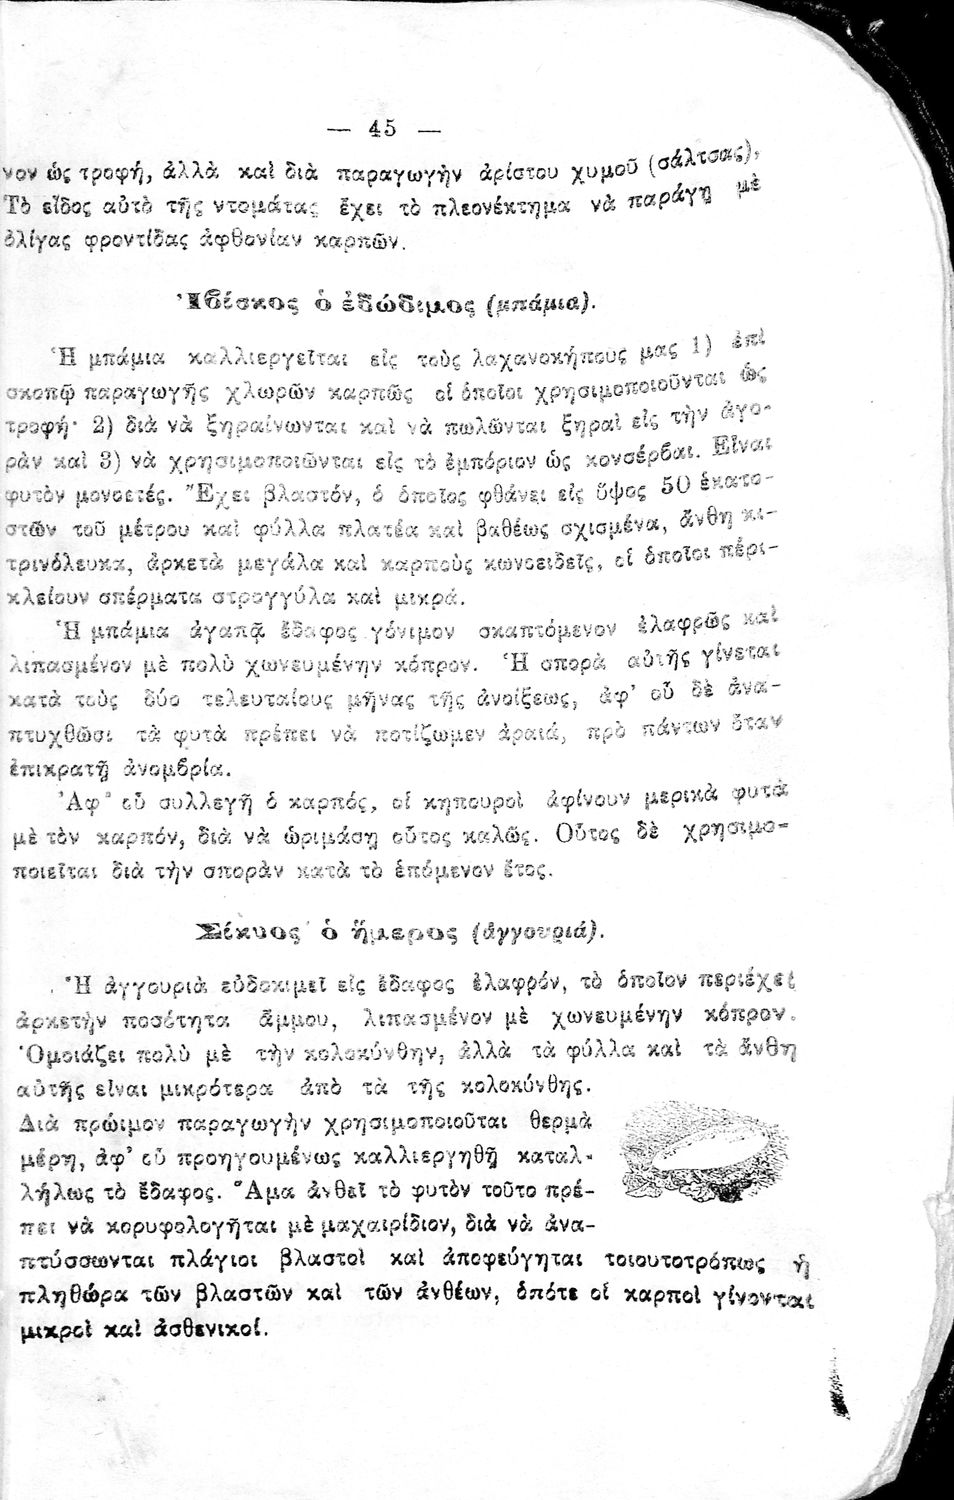 — 45 —
νον ὡς τροφή, ἀλλὰ καὶ διὰ παραγωγὴν ἀρίστου χυμοῦ (σάλτσας),
Τὸ εἶδος αὐτὸ τῆς ντομάτας ἔχει τὸ πλεονέκτημα νὰ παράγῃ μὲ
ὀλίγας φροντίδας ἀφθονίαν καρπῶν.
Ἰβίσκος ὁ ἐδώδιμος (μπάμια).
Ἡ μπάμια καλλιεργεῖται εἰς τοὺς λαχανοκήπους μας 1) ἐπὶ
σκοπῷ παραγωγῆς χλωρῶν καρπῶς οἱ ὁποῖοι χρησιμοποιοῦνται ὡς
τροφή· 2) διὰ νὰ ξηραίνωνται καὶ νὰ πωλῶνται ξηραὶ εἰς τὴν ἀγο-
ρὰν καὶ 3) νὰ χρησιμοποιῶνται εἰς τὸ ἐμπόριον ὡς κονσέρβαι. Εἶναι
φυτὸν μονοετές. Ἔχει βλαστόν, ὁ ὁποῖος φθάνει εἰς ὕψος 50 ἑκατο-
στῶν τοῦ μέτρου καὶ φύλλα πλατέα καὶ βαθέως σχισμένα, ἄνθη κι-
τρινόλευκα, ἀρκετὰ μεγάλα καὶ καρποὺς κωνοειδεῖς, οἱ ὁποῖοι πέρι-
κλείουν σπέρματα στρογγύλα καὶ μικρά.
Ἡ μπάμια ἀγαπᾷ ἔδαφος γόνιμον σκαπτόμενον ἐλαφρῶς καὶ
λιπασμένον μὲ πολὺ χωνευμένην κόπρον. Ἡ σπορὰ αὐτῆς γίνεται
κατὰ τοὺς δύο τελευταίους μῆνας τῆς ἀνοίξεως, ἀφ' οὗ δὲ ἀνα-
πτυχθῶσι τὰ φυτὰ πρέπει νὰ ποτίζωμεν ἀραιά, πρὸ πάντων ὅταν
ἐπικρατῇ ἀνομβρία.
Ἀφ' οὗ συλλεγῇ ὁ καρπός, οἱ κηπουροὶ ἀφίνουν μερικὰ φυτὰ
μὲ τὸν καρπόν, διὰ νὰ ὡριμάσῃ οὗτος καλῶς. Οὗτος δὲ χρησιμο-
ποιεῖται διὰ τὴν σπορὰν κατὰ τὸ ἑπόμενον ἔτος.
Σίκυος ὁ ἥμερος (ἀγγουριά).
Ἡ ἀγγουριὰ εὐδοκιμεῖ εἰς ἔδαφος ἐλαφρόν, τὸ ὁποῖον περιέχει
ἀρκετὴν ποσότητα ἄμμου, λιπασμένον μὲ χωνευμένην κόπρον.
Ὁμοιάζει πολὺ μὲ τὴν κολοκύνθην, ἀλλὰ τὰ φύλλα καὶ τὰ ἄνθη
αὐτῆς εἶναι μικρότερα ἀπὸ τὰ τῆς κολοκύνθης.
Διὰ πρώιμον παραγωγὴν χρησιμοποιοῦται θερμὰ
μέρη, ἀφ' οὗ προηγουμένως καλλιεργηθῇ καταλ-
λήλως τὸ ἔδαφος. Ἅμα ἀνθεῖ τὸ φυτὸν τοῦτο πρέ-
πει νὰ κορυφολογῆται μὲ μαχαιρίδιον, διὰ νὰ ἀνα-
πτύσσωνται πλάγιοι βλαστοὶ καὶ ἀποφεύγηται τοιουτοτρόπως ἡ
πληθώρα τῶν βλαστῶν καὶ τῶν ἀνθέων, ὁπότε οἱ καρποὶ γίνονται
μικροὶ καὶ ἀσθενικοί.